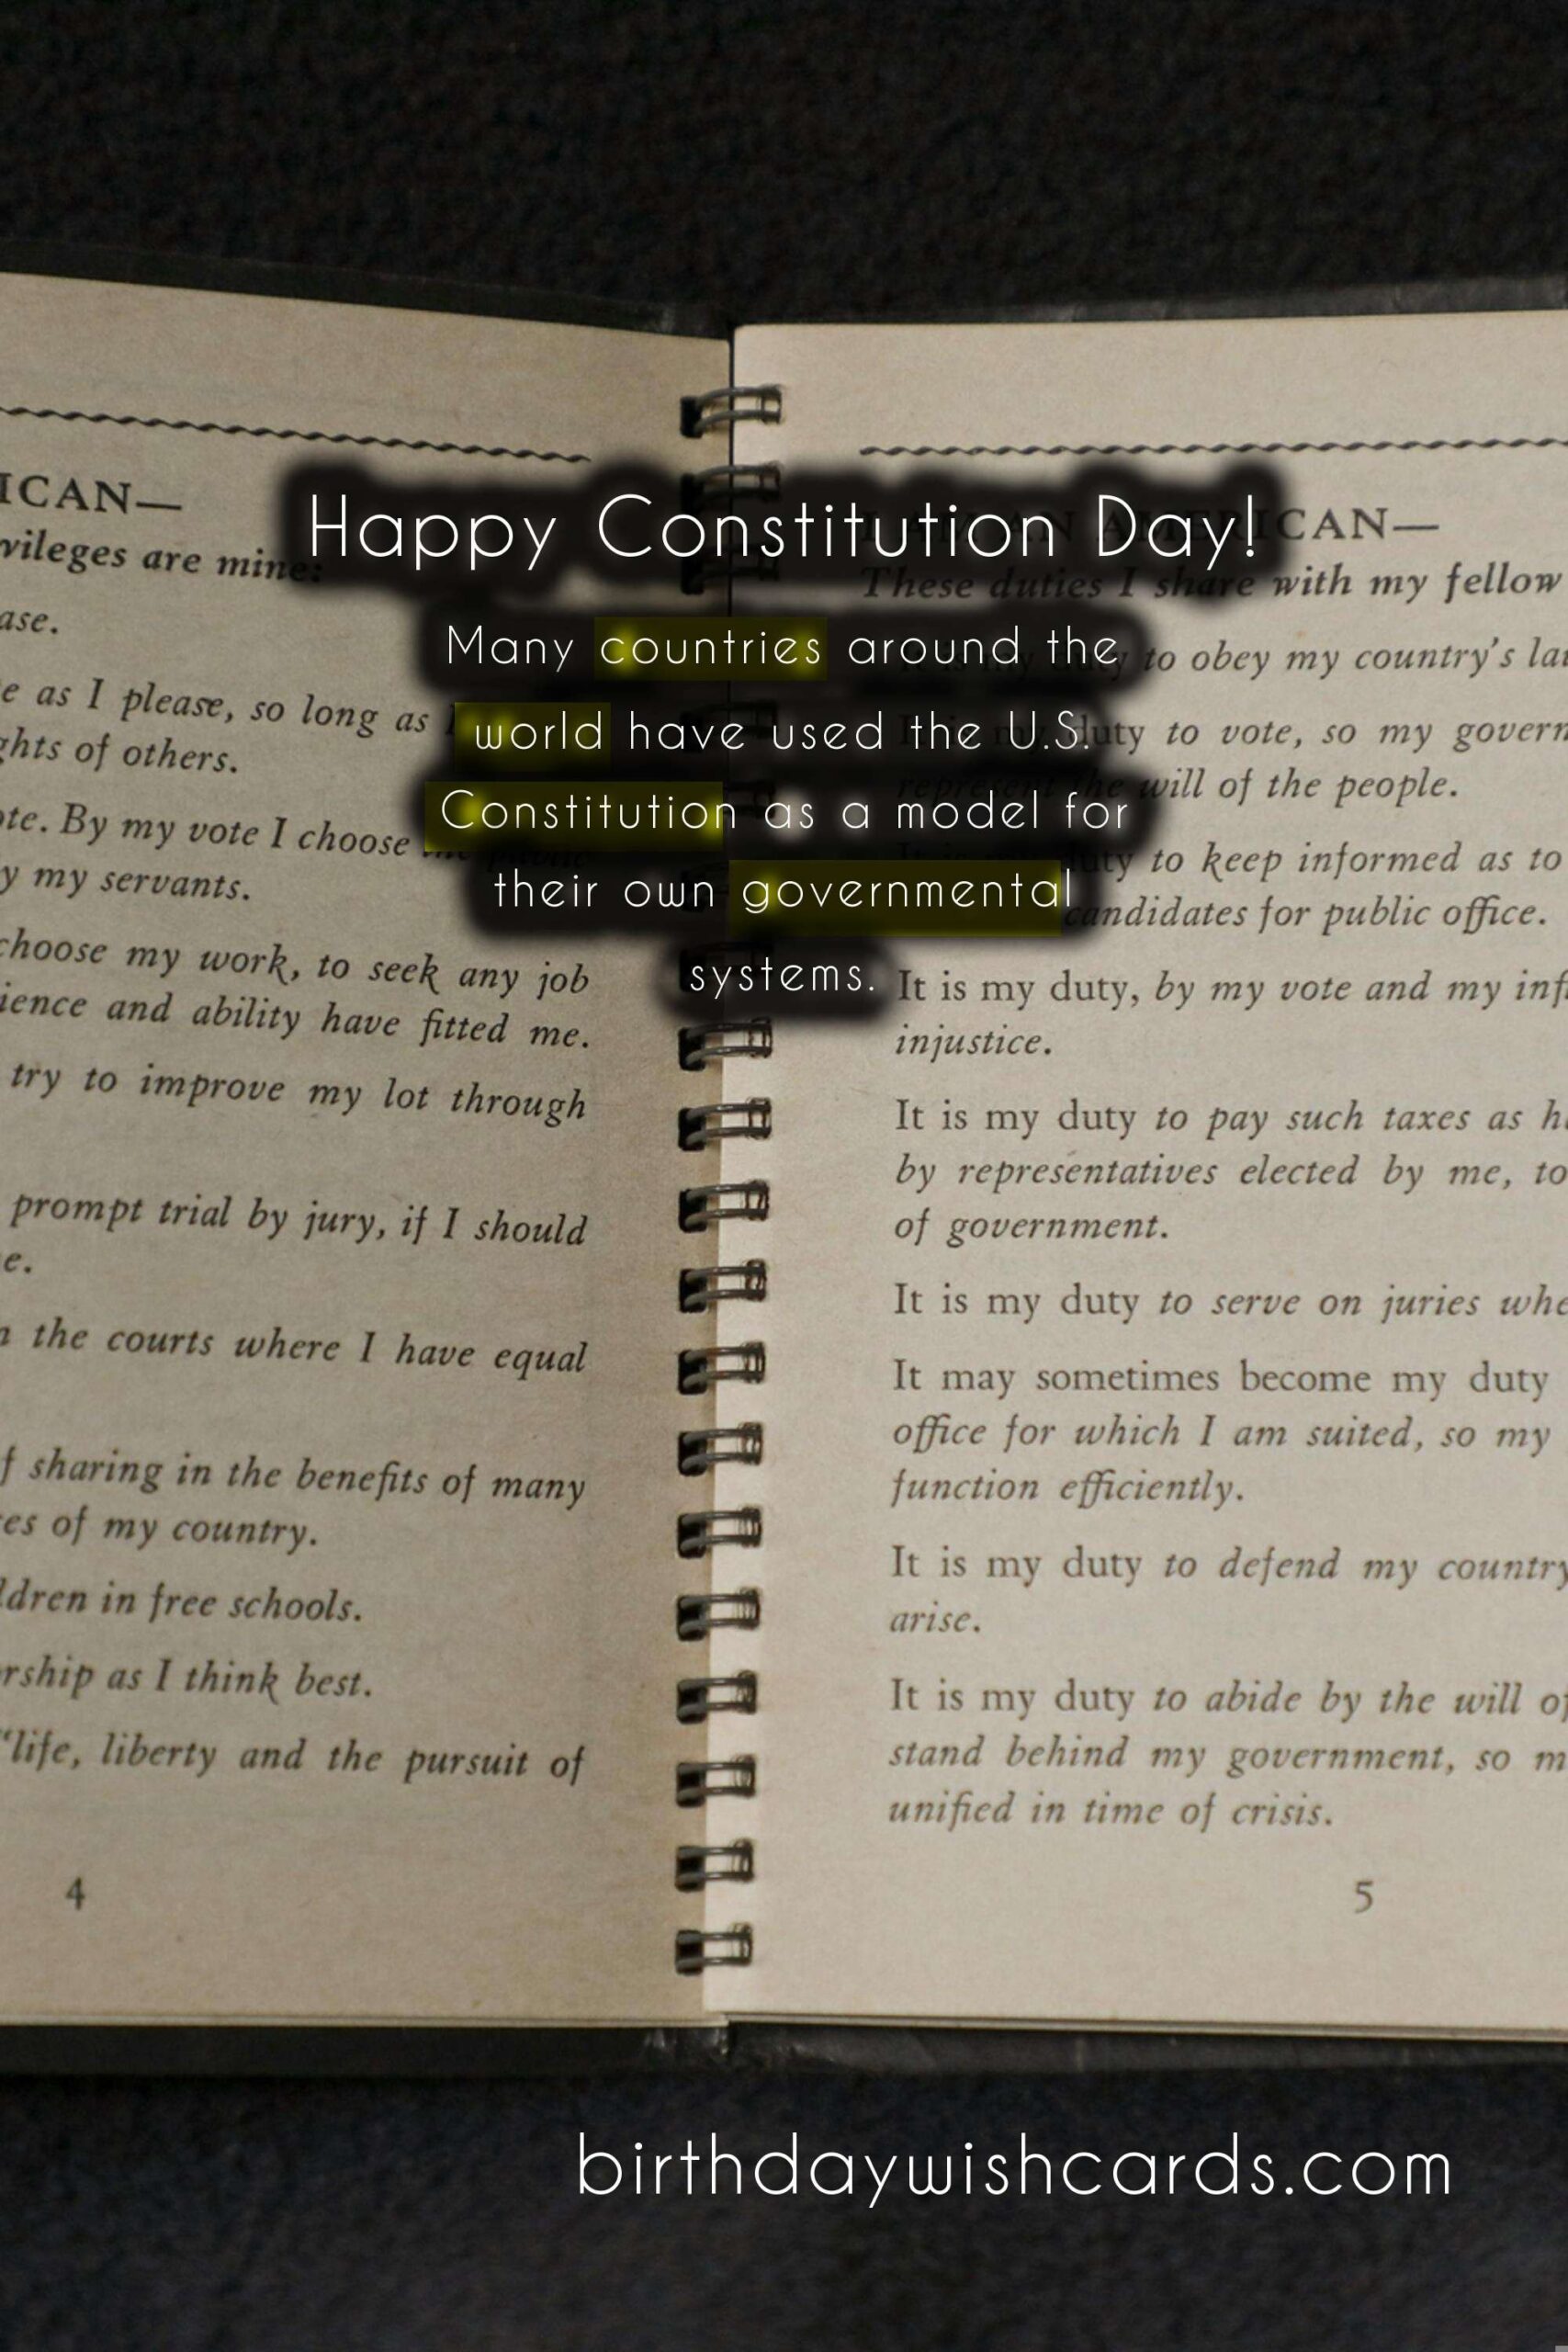 Happy Constitution Day!
Many countries around the
world have used the U.S.
Constitution as a model for
their own governmental
systems.
ICAN—
vileges are mine:
ase.
e as I please, so long as I
ghts of others.
ote. By my vote I choose
y my servants.
choose my work, to seek any job
ience and ability have fitted me.
try to improve my lot through
prompt trial by jury, if I should
e.
n the courts where I have equal
f sharing in the benefits of many
es of my country.
ldren in free schools.
rship as I think best.
"life, liberty and the pursuit of
4
I AM AN AMERICAN—
These duties I share with my fellow
It is my duty to obey my country's la
It is my duty to vote, so my govern
represent the will of the people.
It is my duty to keep informed as to
candidates for public office.
It is my duty, by my vote and my inf
injustice.
It is my duty to pay such taxes as h
by representatives elected by me, to
of government.
It is my duty to serve on juries whe
It may sometimes become my duty
office for which I am suited, so my
function efficiently.
It is my duty to defend my country
arise.
It is my duty to abide by the will of
stand behind my government, so m
unified in time of crisis.
5
birthdaywishcards.com